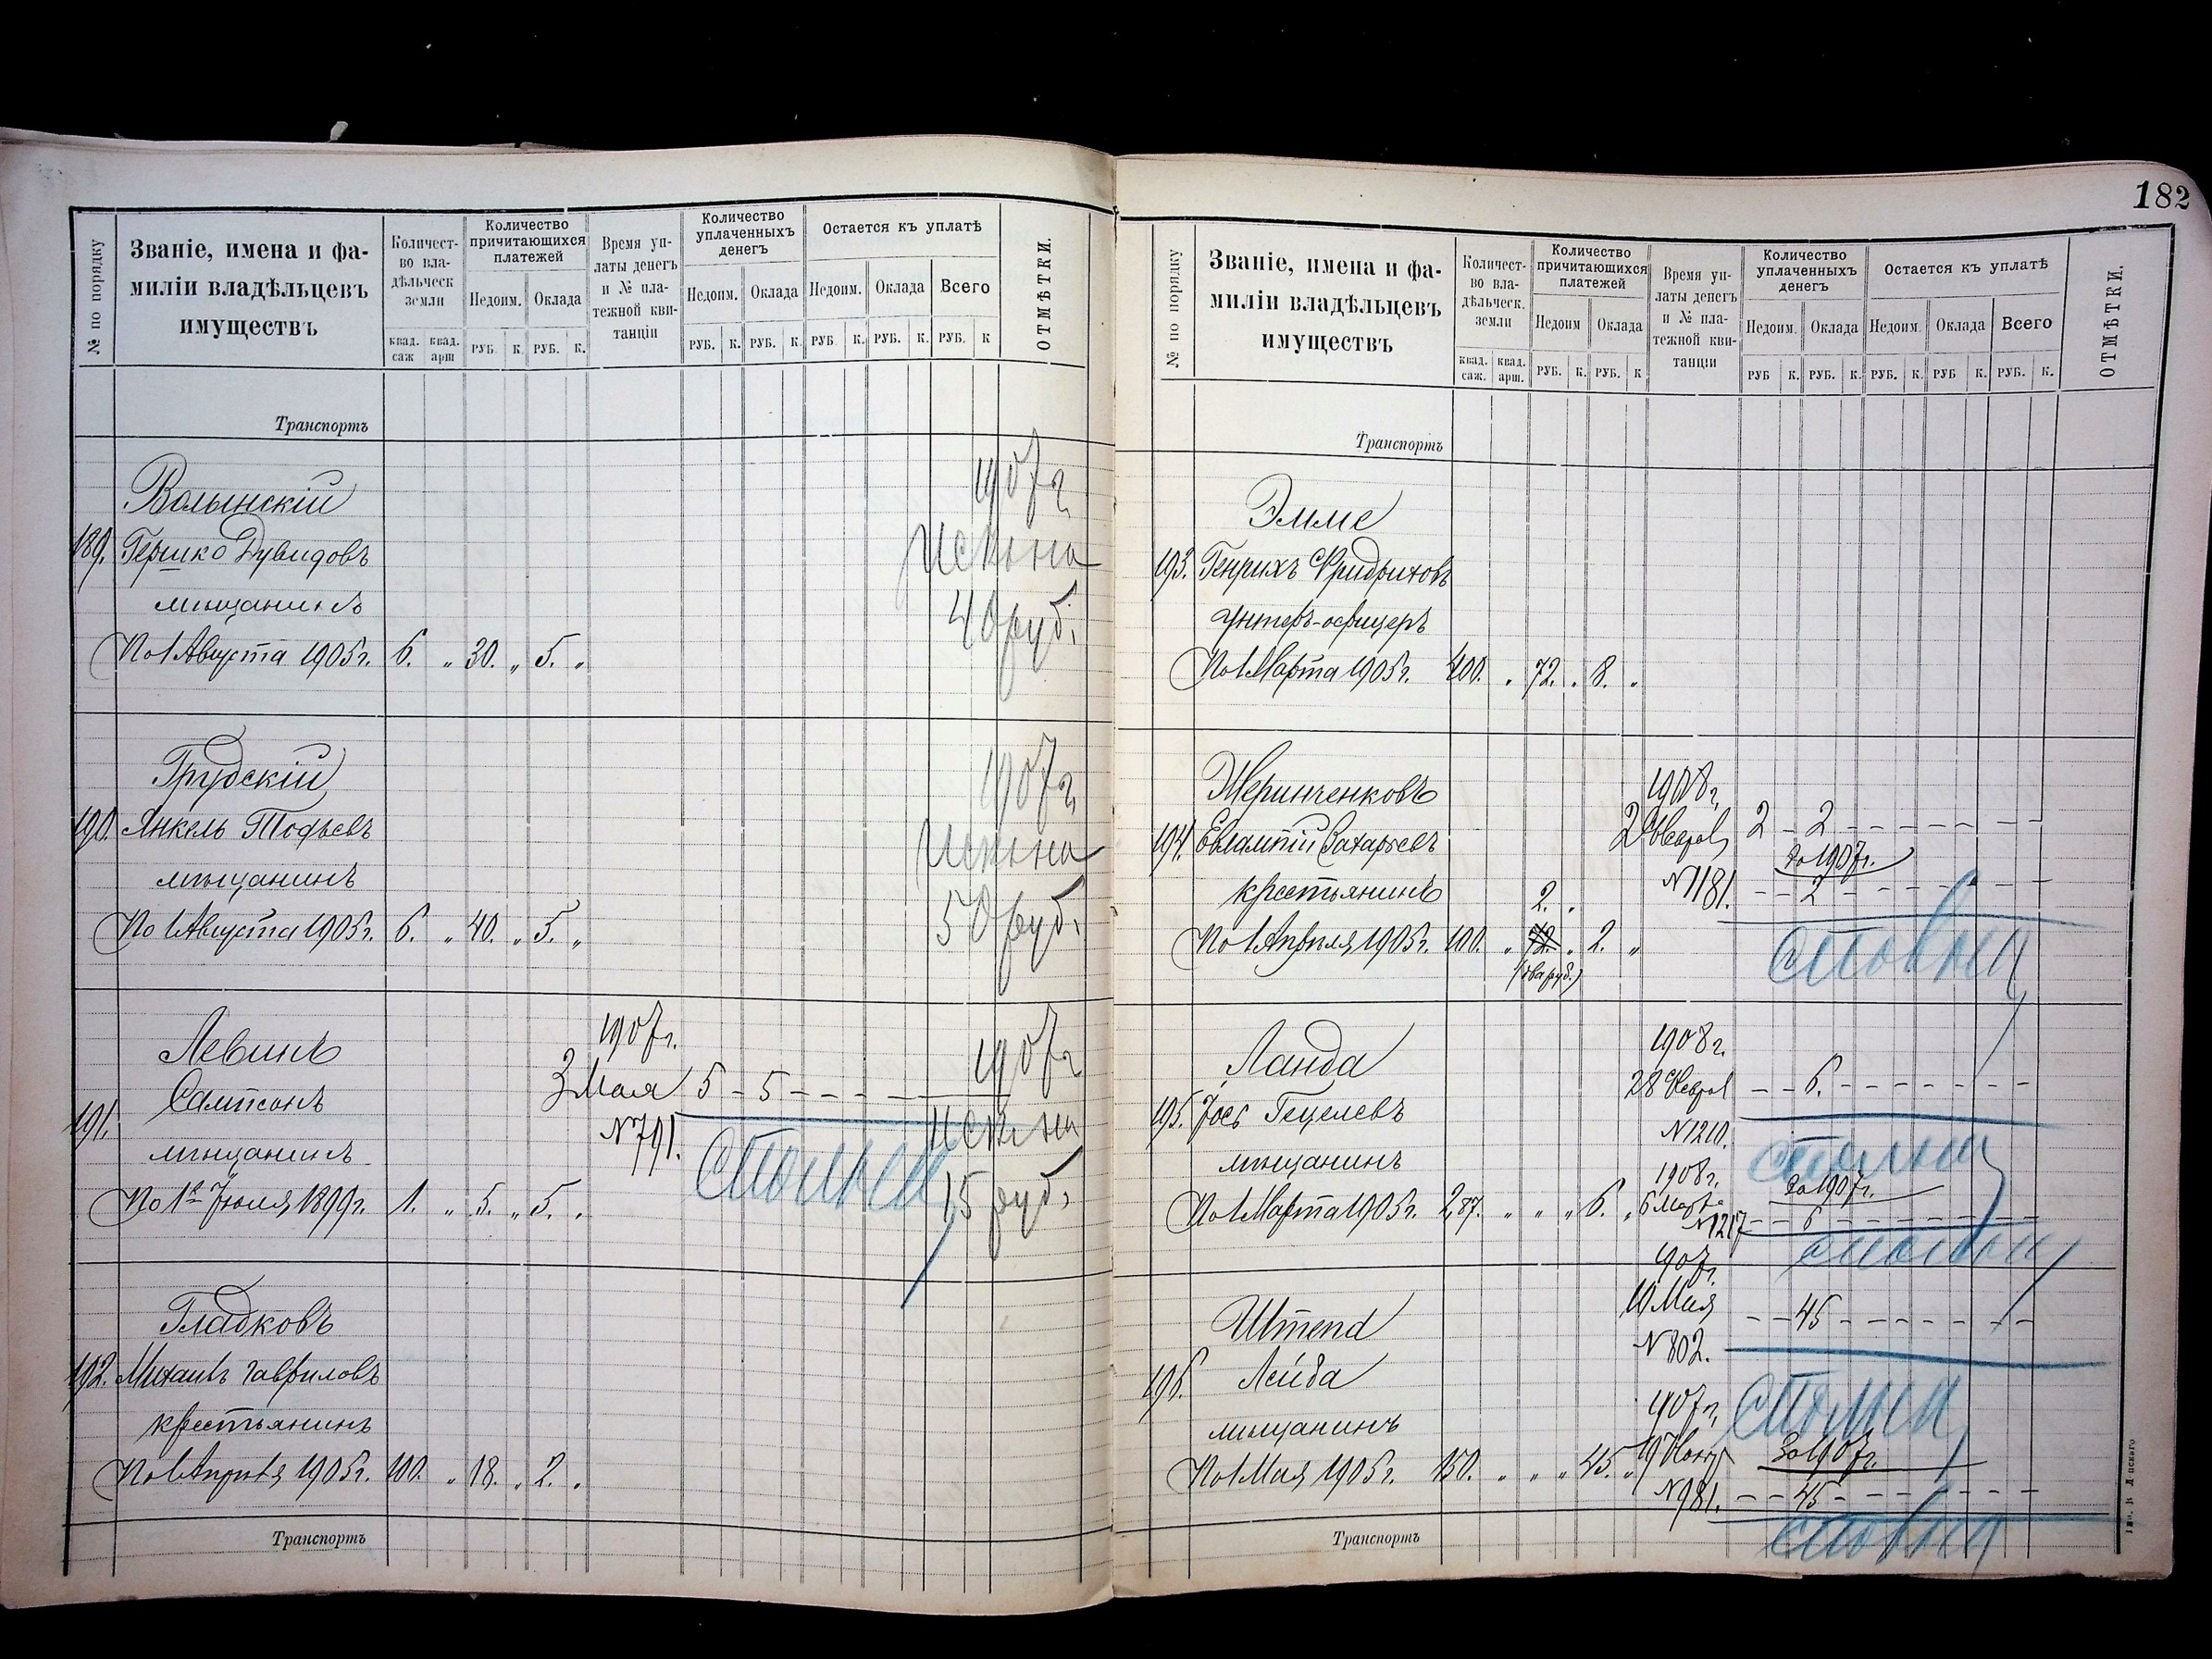 182
№ по порядку
Званіе, имена и фа-
миліи владѣльцевъ
имуществъ
Количест-
во вла-
дѣльческ
земли
квад. саж
квад. арш
Количество
причитающихся
платежей
Недоим.
Оклада
РУБ. К. РУБ. К.
Время уп-
латы денегъ
и № пла-
тежной кви-
танціи
Количество
уплаченныхъ
денегъ
Недоим.
Оклада
РУБ. К. РУБ. К.
Остается къ уплатѣ
Недоим.
Оклада
Всего
РУБ К. РУБ. К. РУБ. К
ОТМѢТКИ.
Транспортъ
Волынскій
189. Гершко Дувидовъ
мѣщанинъ
По 1 Августа 1905 г. 6. „ 30. „ 5. „
1907 г.
40 руб.
Грудскій
190. Янкель
мѣщанинъ
По 1 Августа 1905 г. 6. „ 40. „ 5. „
1907 г.
50 руб.
Левинъ
191. Сампсонъ
мѣщанинъ
По 1е Іюля 1899 г. 1. „ 5. „ 5. „
1907 г.
3 Мая 5 - 5 - - - -
№ 791.
1907 г
15 руб.
Гладковъ
192. Михаилъ Гавриловъ
крестьянинъ
По 1 Апрѣля 1905 г. 100. „ 18. „ 2. „
Транспортъ
№ по порядку
Званіе, имена и фа-
миліи владѣльцевъ
имуществъ
Количест-
во вла-
дѣльческ.
земли
квад. саж.
квад. арш.
Количество
причитающихся
платежей
Недоим
Оклада
РУБ. К. РУБ. К
Время уп-
латы денегъ
и № пла-
тежной кви-
танціи
Количество
уплаченныхъ
денегъ
Недоим.
Оклада
РУБ К. РУБ. К.
Остается къ уплатѣ
Недоим.
Оклада
Всего
РУБ. К. РУБ К. РУБ. К.
ОТМѢТКИ.
Транспортъ
Эмме
193. Генрихъ Фридриховъ
унтеръ-офицеръ
По 1 Марта 1905 г. 400. „ 72. „ 8. „
Жеринченковъ
194. Евлампій Захарьевъ
крестьянинъ
2. „
По 1 Апрѣля 1905 г. 100. „ 72. „ 2. „
(два руб.)
1908 г.
2 - 2 - - - -
За 1907 г.
№ 1181. - - 2 - - - -
Ланда
195. Іосъ Гецелевъ
мѣщанинъ
По 1 Марта 1905 г. 2,87. „ „ „ 6. „
1908 г.
28 Феврал - - 6. - - - -
№ 1210.
1908 г.
6 Марта
За 1907 г.
№ 1217 - - 6 - - - -
Штенд
196. Лейба
мѣщанинъ
По 1 Мая 1905 г. 150. „ „ „ 45. „
907 г.
10 Мая - - 45 - - - -
№ 802.
907 г.
За 1907 г.
№ 981. - - 45 - - - -
Транспортъ